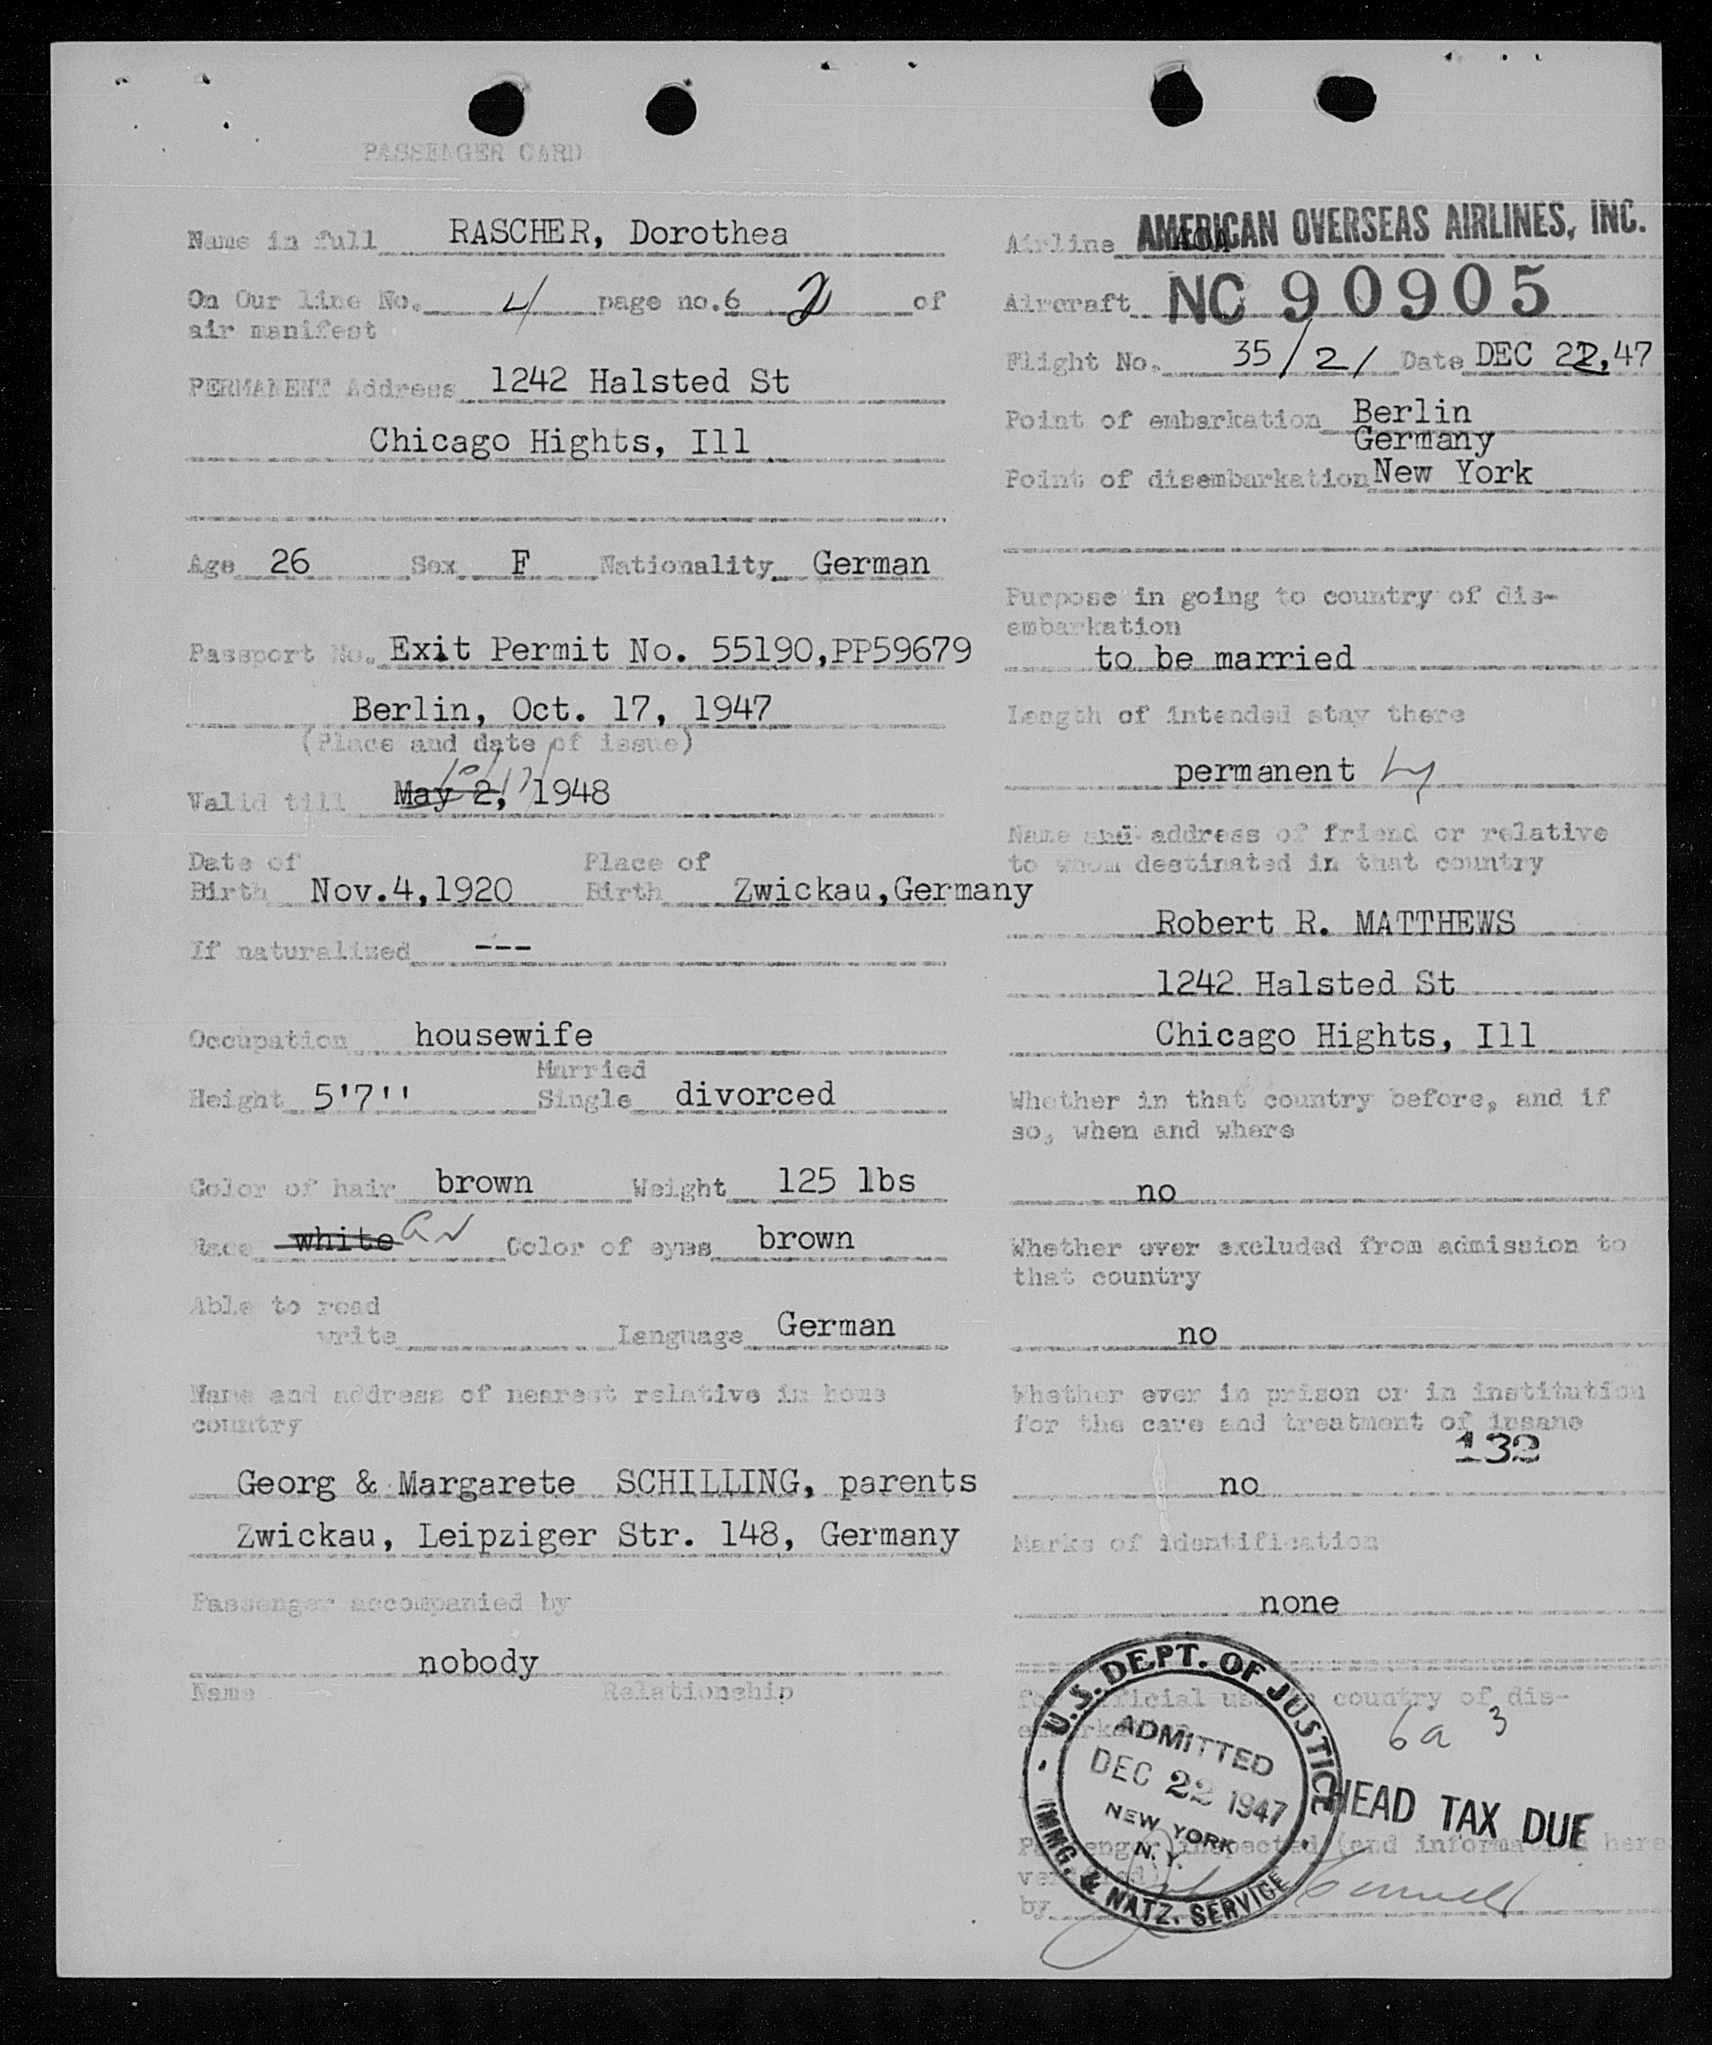 PASSENGER CARD
Name in full RASCHER, Dorothea
On Our line No. 4 page no. 6 2 of
air manifest
PERMANENT Address 1242 Halsted St
Chicago Hights, Ill
Age 26 Sex F Nationality German
Passport No. Exit Permit No. 55190, PP59679
Berlin, Oct. 17, 1947
(Place and date of issue)
Valid till May 2, 1948
Date of Place of
Birth Nov.4,1920 Birth Zwickau,Germany
If naturalized ---
Occupation housewife
Married
Height 5'7'' Single divorced
Color of hair brown Weight 125 lbs
Race white Color of eyes brown
Able to read
write Language German
Name and address of nearest relative in home
country
Georg & Margarete SCHILLING, parents
Zwickau, Leipziger Str. 148, Germany
Passenger accompanied by
nobody
Name Relationship
Airline AOA AMERICAN OVERSEAS AIRLINES, INC.
Aircraft NC 90905
Flight No. 35/21 Date DEC 22, 47
Point of embarkation Berlin
Germany
Point of disembarkation New York
Purpose in going to country of dis-
embarkation
to be married
Length of intended stay there
permanent
Name and address of friend or relative
to whom destinated in that country
Robert R. MATTHEWS
1242 Halsted St
Chicago Hights, Ill
Whether in that country before, and if
so, when and where
no
Whether ever excluded from admission to
that country
no
Whether ever in prison or in institution
for the care and treatment of insane
132
no
Marks of identification
none
for official use in country of dis-
embarkation
6a 3
U.S. DEPT. OF JUSTICE
ADMITTED
DEC 22 1947
NEW YORK
N.Y.
IMMG. & NATZ. SERVICE
HEAD TAX DUE
Passenger inspected (and information here
verified)
by